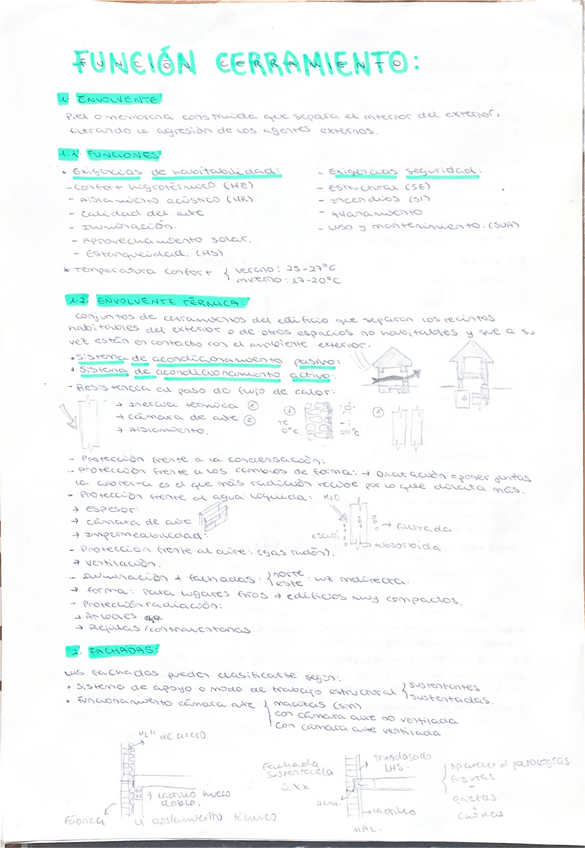 FUNCIÓN CERRAMIENTO:
1. ENVOLVENTE
Piel o membrana construida que separa el interior del exterior,
filtrando la agresión de los agentes externos.
1.1. FUNCIONES
• Exigencias de habitabilidad:
- Confort higrotérmico (HE)
- Aislamiento acústico (HR)
- Calidad del aire
- Iluminación.
- Aprovechamiento solar.
- Estanqueidad. (HS)
- Exigencias seguridad:
- Estructural (SE)
- Incendios (SI)
- Atildamiento
- Uso y mantenimiento. (SUA)
* Temperatura confort { verano: 25-27°C
invierno: 17-20°C
1.2. ENVOLVENTE TÉRMICA:
Conjuntos de cerramientos del edificio que separan los recintos
habitables del exterior o de otros espacios no habitables y que a su
vez están en contacto con el ambiente exterior.
• Sistema de acondicionamiento pasivo:
• Sistema de acondicionamiento activo:
- Resistencia al paso de flujo de calor:
→ Inercia térmica ①
→ cámara de aire ②
→ Aislamiento.
①
0°C.
20°C
②
- Protección frente a la condensación:
- Protección frente a los cambios de forma: → Dilatación → poner juntas
la cubierta es el que más radiación recibe por lo que dilata más.
- Protección frente al agua líquida:
→ espesor:
→ cámara de aire
→ Impermeabilidad:
H2O
→ filtrada
absorbida
- Protección frente al aire: (gas radón).
→ ventilación.
- Iluminación → fachadas: { norte
este : luz indirecta.
→ forma: para lugares fríos → edificios muy compactos.
- Protección radiación:
→ Árboles
→ Rejillas/contraventanas
2. FACHADAS
Las fachadas pueden clasificarse según:
• Sistema de apoyo o modo de trabajo estructural { sustentantes
sustentadas.
• Funcionamiento cámara aire { macizas (sin)
con cámara aire no ventilada
con cámara aire ventilada
"L" de acero
ladrillo hueco
doble.
Fábrica
aislamiento térmico
Fachada
sustentada
S.XX
Trasdosado
LHS.
ladrillo
MAL.
Aparecen patologías
fisuras
↓
grietas
↓
caídas